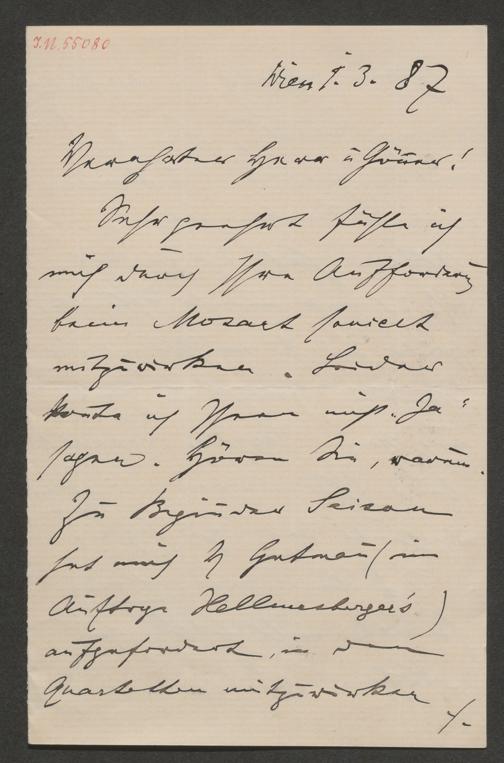 I.N. 55080
Wien 1. 3. 87
Verehrter Herr u Gönner!
Sehr geehrt fühle ich
mich durch Ihre Aufforderung
beim Mozart
mitzuwirken. Leider
konte ich Ihnen nicht "Ja"
sagen. Hören Sie, warum.
Zu Begin der Saison
hat mich H Gutman (im
Auftrage Hellmesberger's)
aufgefordert, in den
Quartetten mitzuwirken